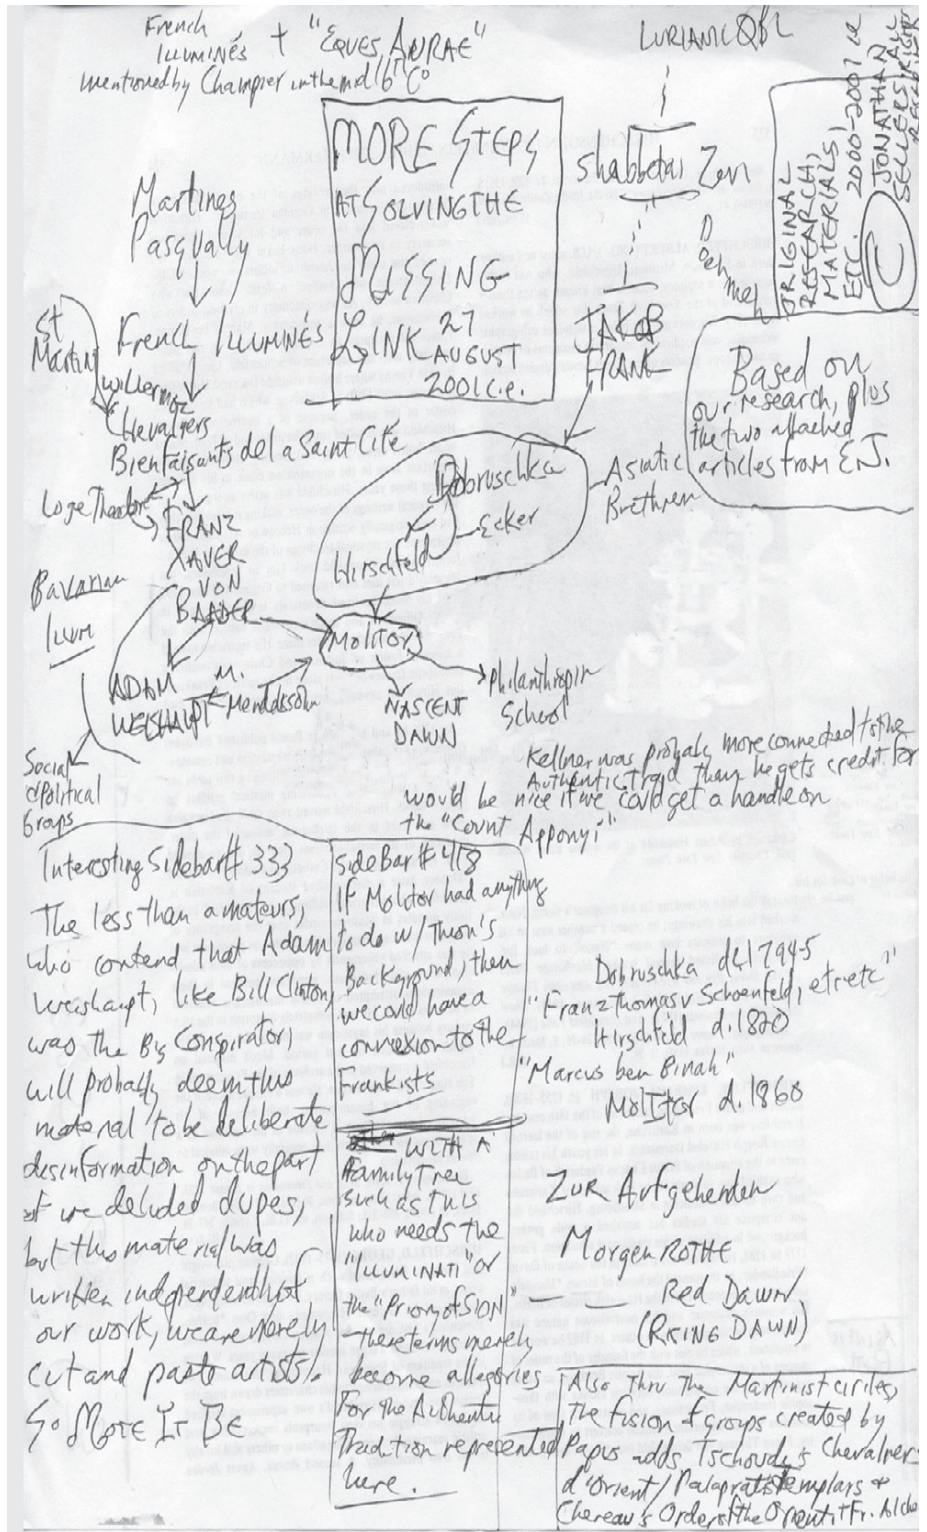 French
ILLUMINÉS + "EQUES AURAE"
mentioned by Champier in the mid 16th Cº
LURIANIC QBL
MORE STEPS
AT SOLVING THE
MISSING
LINK 27
AUGUST
2001 c.e.
Shabbetai Zevi
JAKOB
FRANK
ORIGINAL
RESEARCH,
MATERIALS,
ETC. 2000-2001 ce
© JONATHAN
SELLERS ALL
RIGHTS
Based on
our research, plus
the two attached
articles from E.J.
Martines
Pasqually
French ILLUMINÉS
St
Martin
Willermoz
Chevaliers
Bienfaisants de la Saint Cite
Loge Theodore
FRANZ
XAVER
VON
BAADER
Bavarian
Illum
ADAM
WEISHAUPT
M.
Mendelssohn
Social
& Political
Groups
Dobruschka
Ecker
Hirschfeld
Asiatic
Brethren
Molitor
Philanthropin
School
NASCENT
DAWN
Kellner was probably more connected to the
Authentic Trad than he gets credit for
would be nice if we could get a handle on
the "Count Apponyi"
Interesting Sidebar # 333
The less than amateurs,
who contend that Adam
Weishaupt, like Bill Clinton,
was the Big Conspirator,
will probably deem this
material to be deliberate
disinformation on the part
of we deluded dupes,
but this material was
written independent of
our work, we are merely
cut and paste artists.
So MOTE IT BE
SideBar # 418
If Molitor had anything
to do w/ Theon's
Background, then
we could have a
connexion to the
Frankists
WITH A
Family Tree
such as This
who needs the
"ILLUMINATI" or
the "Priory of SION"
- these terms merely
become allegories
For the Authentic
Tradition represented
here.
Dobruschka d. 1794-5
"Franz Thomas v Schoenfeld, etc etc"
Hirschfeld d. 1820
"Marcus ben Binah"
Molitor d. 1860
ZUR Aufgehenden
Morgen ROTHE
Red Dawn
(RISING DAWN)
Also thru The Martinist circles,
the fusion of groups created by
Papus adds Tschoudy's Chevaliers
d'Orient / Palaprat's Templars &
Chereau's Order of the Orient